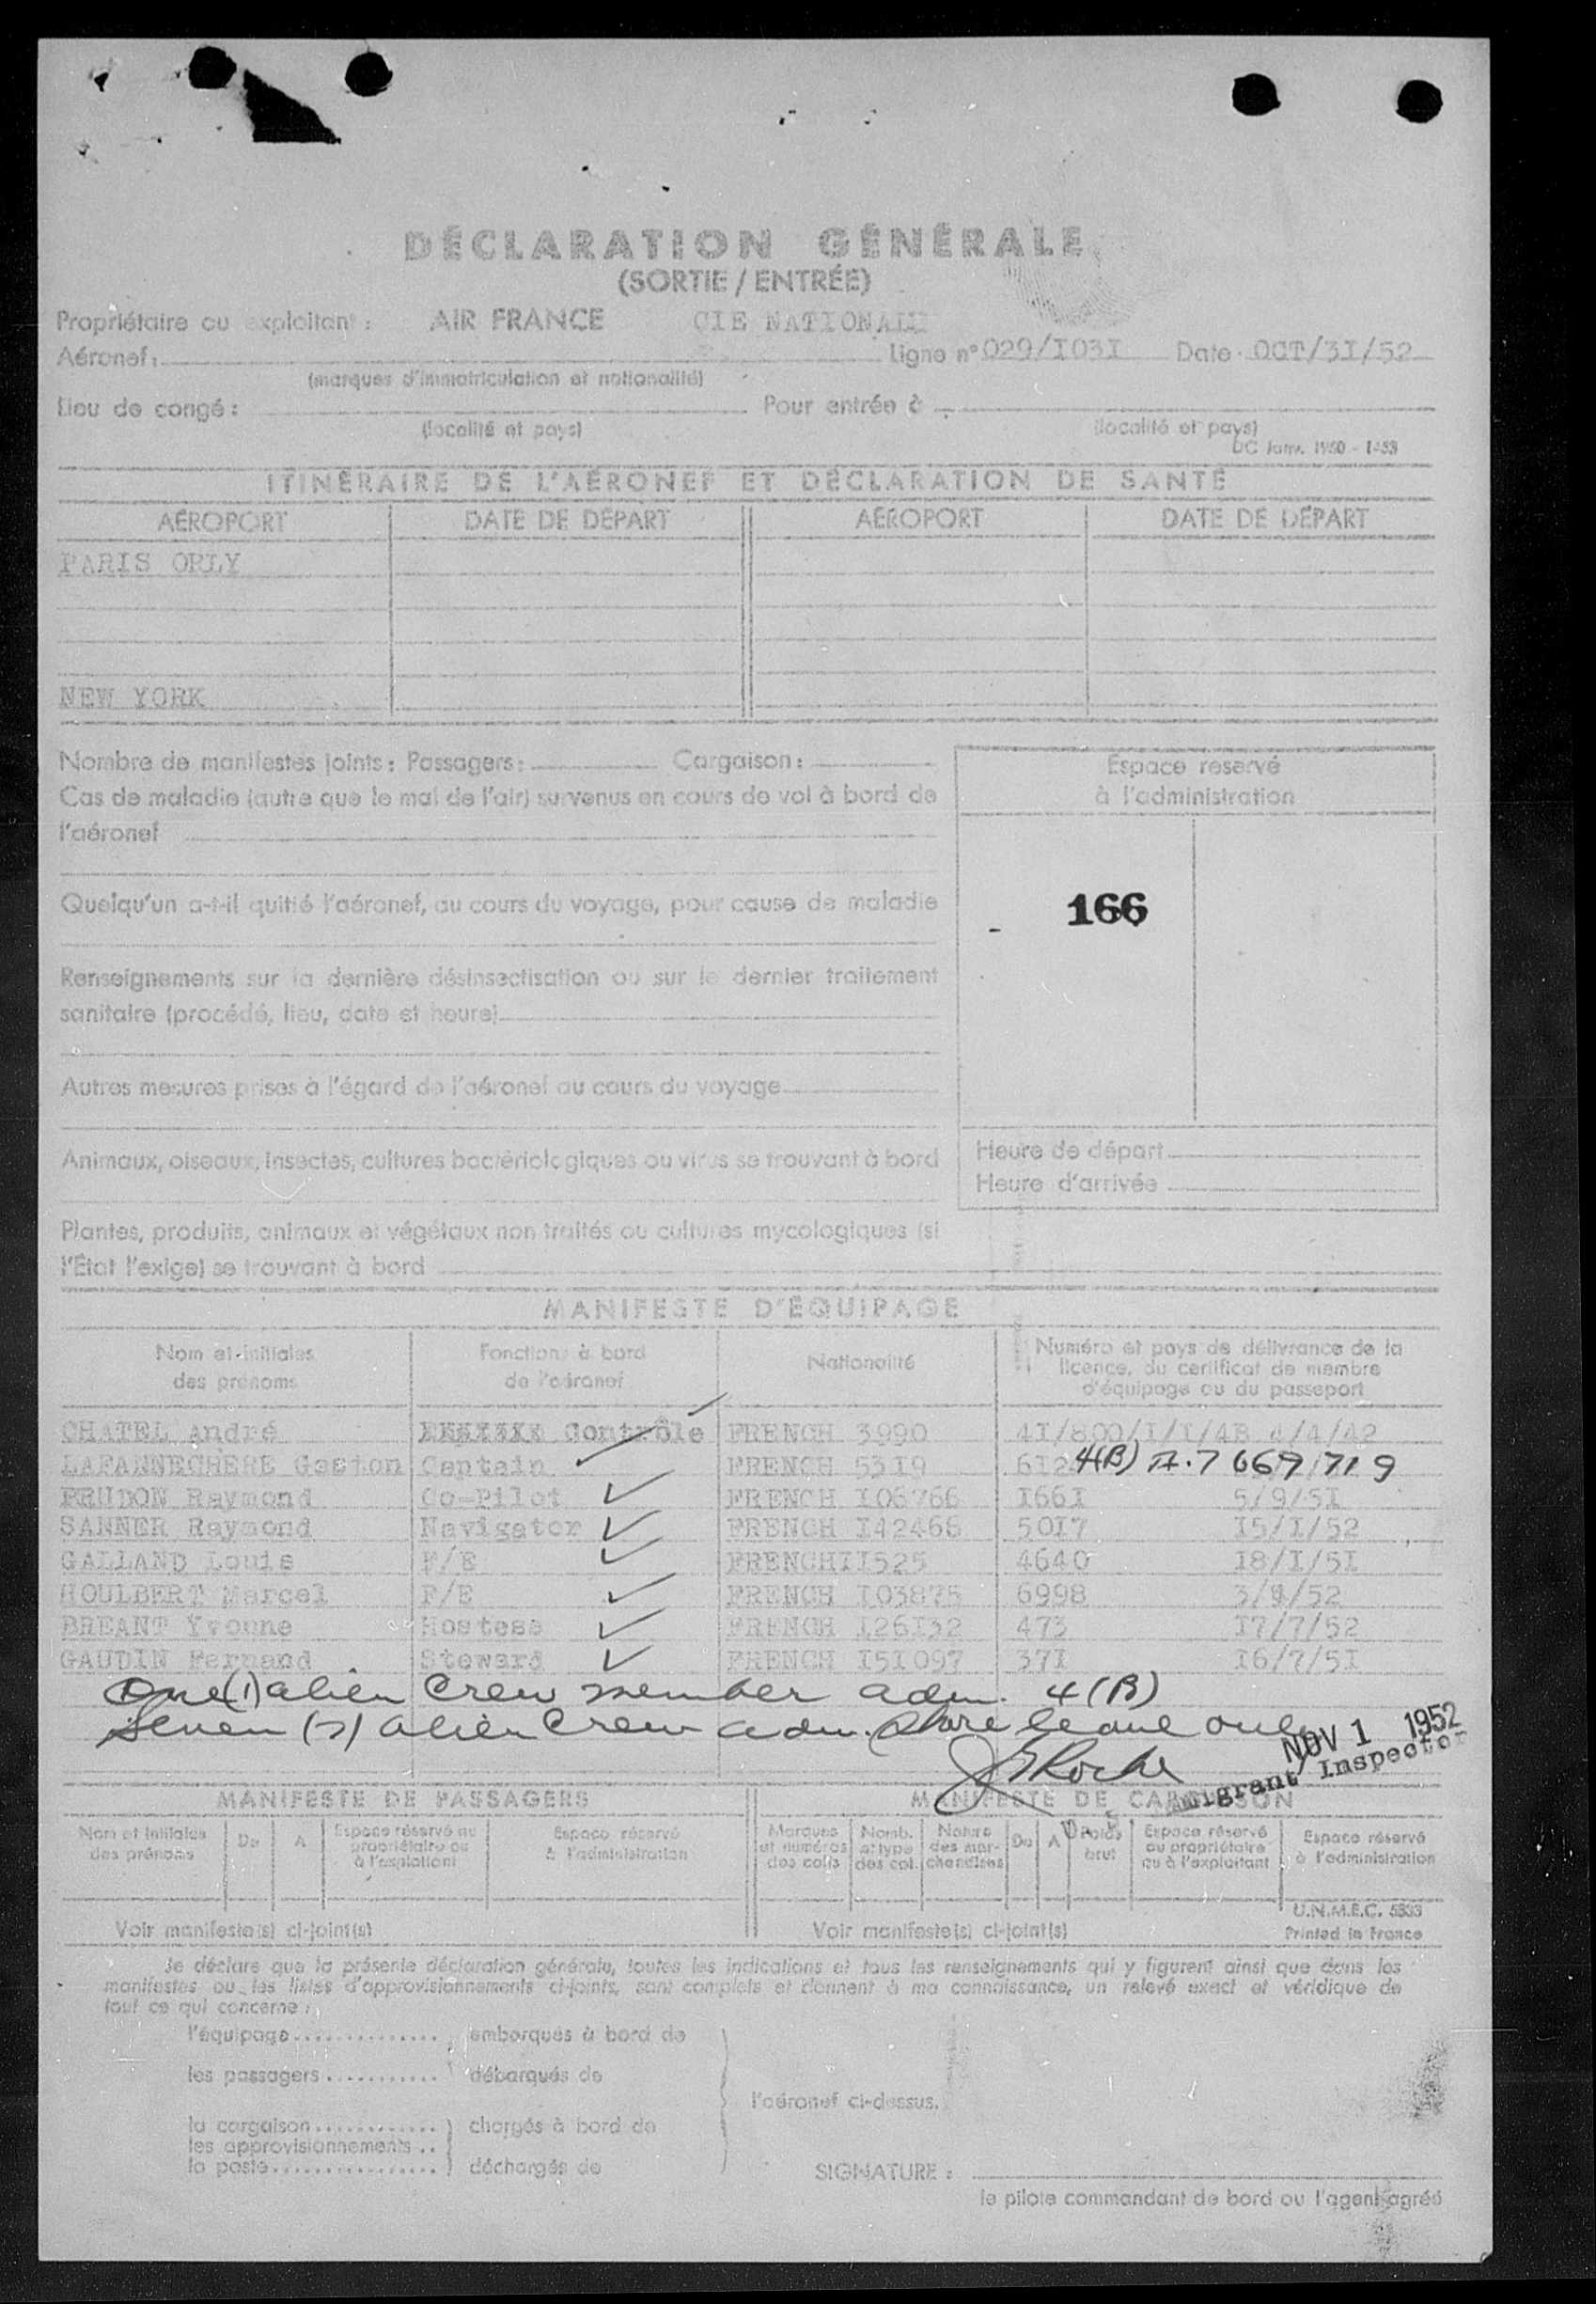 DÉCLARATION GÉNÉRALE
(SORTIE / ENTRÉE)
Propriétaire ou exploitant : AIR FRANCE CIE NATIONALE
Aéronef : Ligne n° 029/I03I Date OCT/3I/52
(marques d'immatriculation et nationalité)
Lieu de congé : Pour entrée à
(localité et pays) (localité et pays)
DC Janv. 1950 - 1-53
ITINÉRAIRE DE L'AÉRONEF ET DÉCLARATION DE SANTÉ
AÉROPORT DATE DE DÉPART AÉROPORT DATE DE DÉPART
PARIS ORLY
NEW YORK
Nombre de manifestes joints : Passagers : Cargaison :
Espace reservé
à l'administration
Cas de maladie (autre que le mal de l'air) survenus en cours de vol à bord de
l'aéronef
166
Quelqu'un a-t-il quitté l'aéronef, au cours du voyage, pour cause de maladie
Renseignements sur la dernière désinsectisation ou sur le dernier traitement
sanitaire (procédé, lieu, date et heure)
Autres mesures prises à l'égard de l'aéronef au cours du voyage
Animaux, oiseaux, insectes, cultures bactériologiques ou virus se trouvant à bord
Heure de départ
Heure d'arrivée
Plantes, produits, animaux et végétaux non traités ou cultures mycologiques (si
l'État l'exige) se trouvant à bord
MANIFESTE D'ÉQUIPAGE
Nom et initiales des prénoms Fonctions à bord de l'aéronef Nationalité Numéro et pays de délivrance de la licence, du certificat de membre d'équipage ou du passeport
CHATEL André Contrôle FRENCH 3990 4I/800/I/I/4B 4/4/42
LAFANNECHERE Gaston Captain FRENCH 53I9 4(B) A·7 669 719
PRUDON Raymond Co-Pilot FRENCH I06766 I66I 5/9/5I
SANNER Raymond Navigator FRENCH I42466 50I7 I5/I/52
GALLAND Louis F/E FRENCHII525 4640 I8/I/5I
HOULBERT Marcel F/E FRENCH I03875 6998 3/4/52
BREANT Yvonne Hostess FRENCH I26I32 473 I7/7/52
GAUDIN Fernand Steward FRENCH I5I097 37I I6/7/5I
One (1) alien crew member adm. 4(B)
Seven (7) alien crew adm. shore leave only
NOV 1 1952
Immigrant Inspector
MANIFESTE DE PASSAGERS MANIFESTE DE CARGAISON
Nom et initiales des prénoms De A Espace réservé au propriétaire ou à l'exploitant Espace réservé à l'administration Marques et numéros des colis Nomb. et type des col. Nature des marchandises De A Poids brut Espace réservé au propriétaire ou à l'exploitant Espace réservé à l'administration
U.N.M.E.C. 5333
Voir manifeste(s) ci-joint(s) Voir manifeste(s) ci-joint(s) Printed in France
Je déclare que la présente déclaration générale, toutes les indications et tous les renseignements qui y figurent ainsi que dans les
manifestes ou les listes d'approvisionnements ci-joints, sont complets et donnent à ma connaissance, un relevé exact et véridique de
tout ce qui concerne :
l'équipage .............. embarqués à bord de
les passagers ........... débarqués de
l'aéronef ci-dessus.
la cargaison ............ chargés à bord de
les approvisionnements ..
la poste ................ déchargés de
SIGNATURE :
le pilote commandant de bord ou l'agent agréé